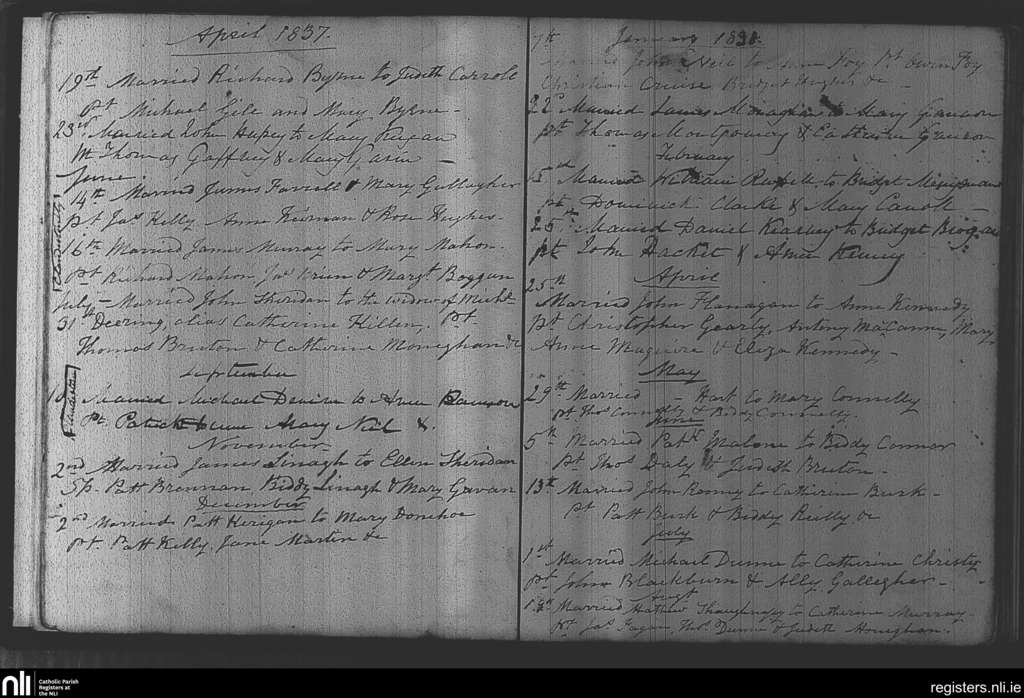 April 1837.
19th Married Richard Byrne to Judith Carroll
pt Michael Gile and Mary Byrne -
23rd Married John Hupey to Mary Reagan
Pt Thomas Gaffney & Mary Gavin -
June.
14th Married James Farrell & Mary Gallagher
pt Jas Kelly Anne Keernan & Rose Hughes.
16th Married James Murray to Mary Mahon.
pt Richard Mahon Jas & Margt Boggan
July - Married John Sheridan to the widow of Michl
31st Deering, alias Catherine Killen, Pt.
Thomas Bruton & Catherine Moneghan &c
September
Married Michael to Anne
Pt. Patrick Mary Neil &.
November
2nd Married James Linagh to Ellen Sheridan
Sp. Patt Brennan Biddy Linagh & Mary Gavan
December
2nd Married Patt Kerigan to Mary Donehoe
pt. Patt Kelly, Jane Martin &c
7th January 1838.
John Neil to Anne Foy Pt Owen Foy
Christian Cruise Bridget Hughes &c -
22 Married James Monaghan to Mary Gannon
pt Thomas Montgomery & Catherine Gannon
February
Married William Russell to Bridget
pt Dominick Clarke & Mary Carroll -
25th Married Daniel Kearney to Bridget Brogan
pt John Hacket & Anne Kenny
April
25th
Married John Flanagan to Anne Kennedy
Pt Christopher Gearty, Antony MaCanne, Mary
Anne Maguire & Eliza Kennedy -
May
29th Married - Hart to Mary Connelly
pt Thos Connelly & Biddy Connelly.
June
5th Married Patk Malone to Biddy Connor
Pt Thos Daly & Judith Bruton -
13th Married John Ronney to Catherine Burk -
Pt Patt Burk & Biddy Reilly &c
July
1st Married Michael Dunne to Catherine Christy
pt John Blackburn & Ally Gallegher -
Augt
Married Mathew Shaughnessy to Catherine Murray
Pt Jas Fagan, Thos Dunne & Judith Moneghan.
nli
Catholic Parish
Registers at
the NLI
registers.nli.ie